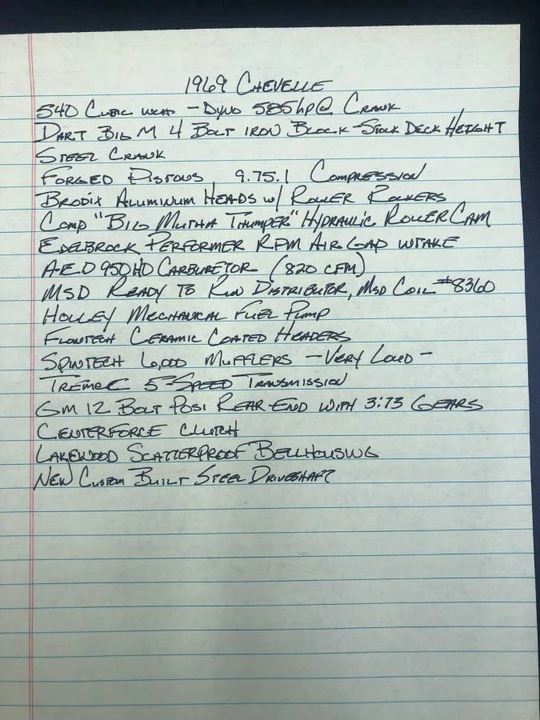 1969 CHEVELLE
540 CUBIC INCH - DYNO 585hp@ CRANK
DART BIG M 4 BOLT IRON BLOCK - STOCK DECK HEIGHT
STEEL CRANK
FORGED PISTONS 9.75.1 COMPRESSION
BRODIX ALUMINUM HEADS w/ ROLLER ROCKERS
COMP "BIG MUTHA THUMPER" HYDRAULIC ROLLER CAM
EDELBROCK PERFORMER RPM AIR GAP INTAKE
A.E.D 950 HO CARBURETOR (820 CFM)
MSD READY TO RUN DISTRIBUTOR, MSD COIL #8360
HOLLEY MECHANICAL FUEL PUMP
FLOWTECH CERAMIC COATED HEADERS
SPINTECH 6,000 MUFFLERS - VERY LOUD -
TREMEC 5-SPEED TRANSMISSION
GM 12 BOLT POSI REAR-END WITH 3:73 GEARS
CENTERFORCE CLUTCH
LAKEWOOD SCATTERPROOF BELLHOUSING
NEW CUSTOM BUILT STEEL DRIVESHAFT